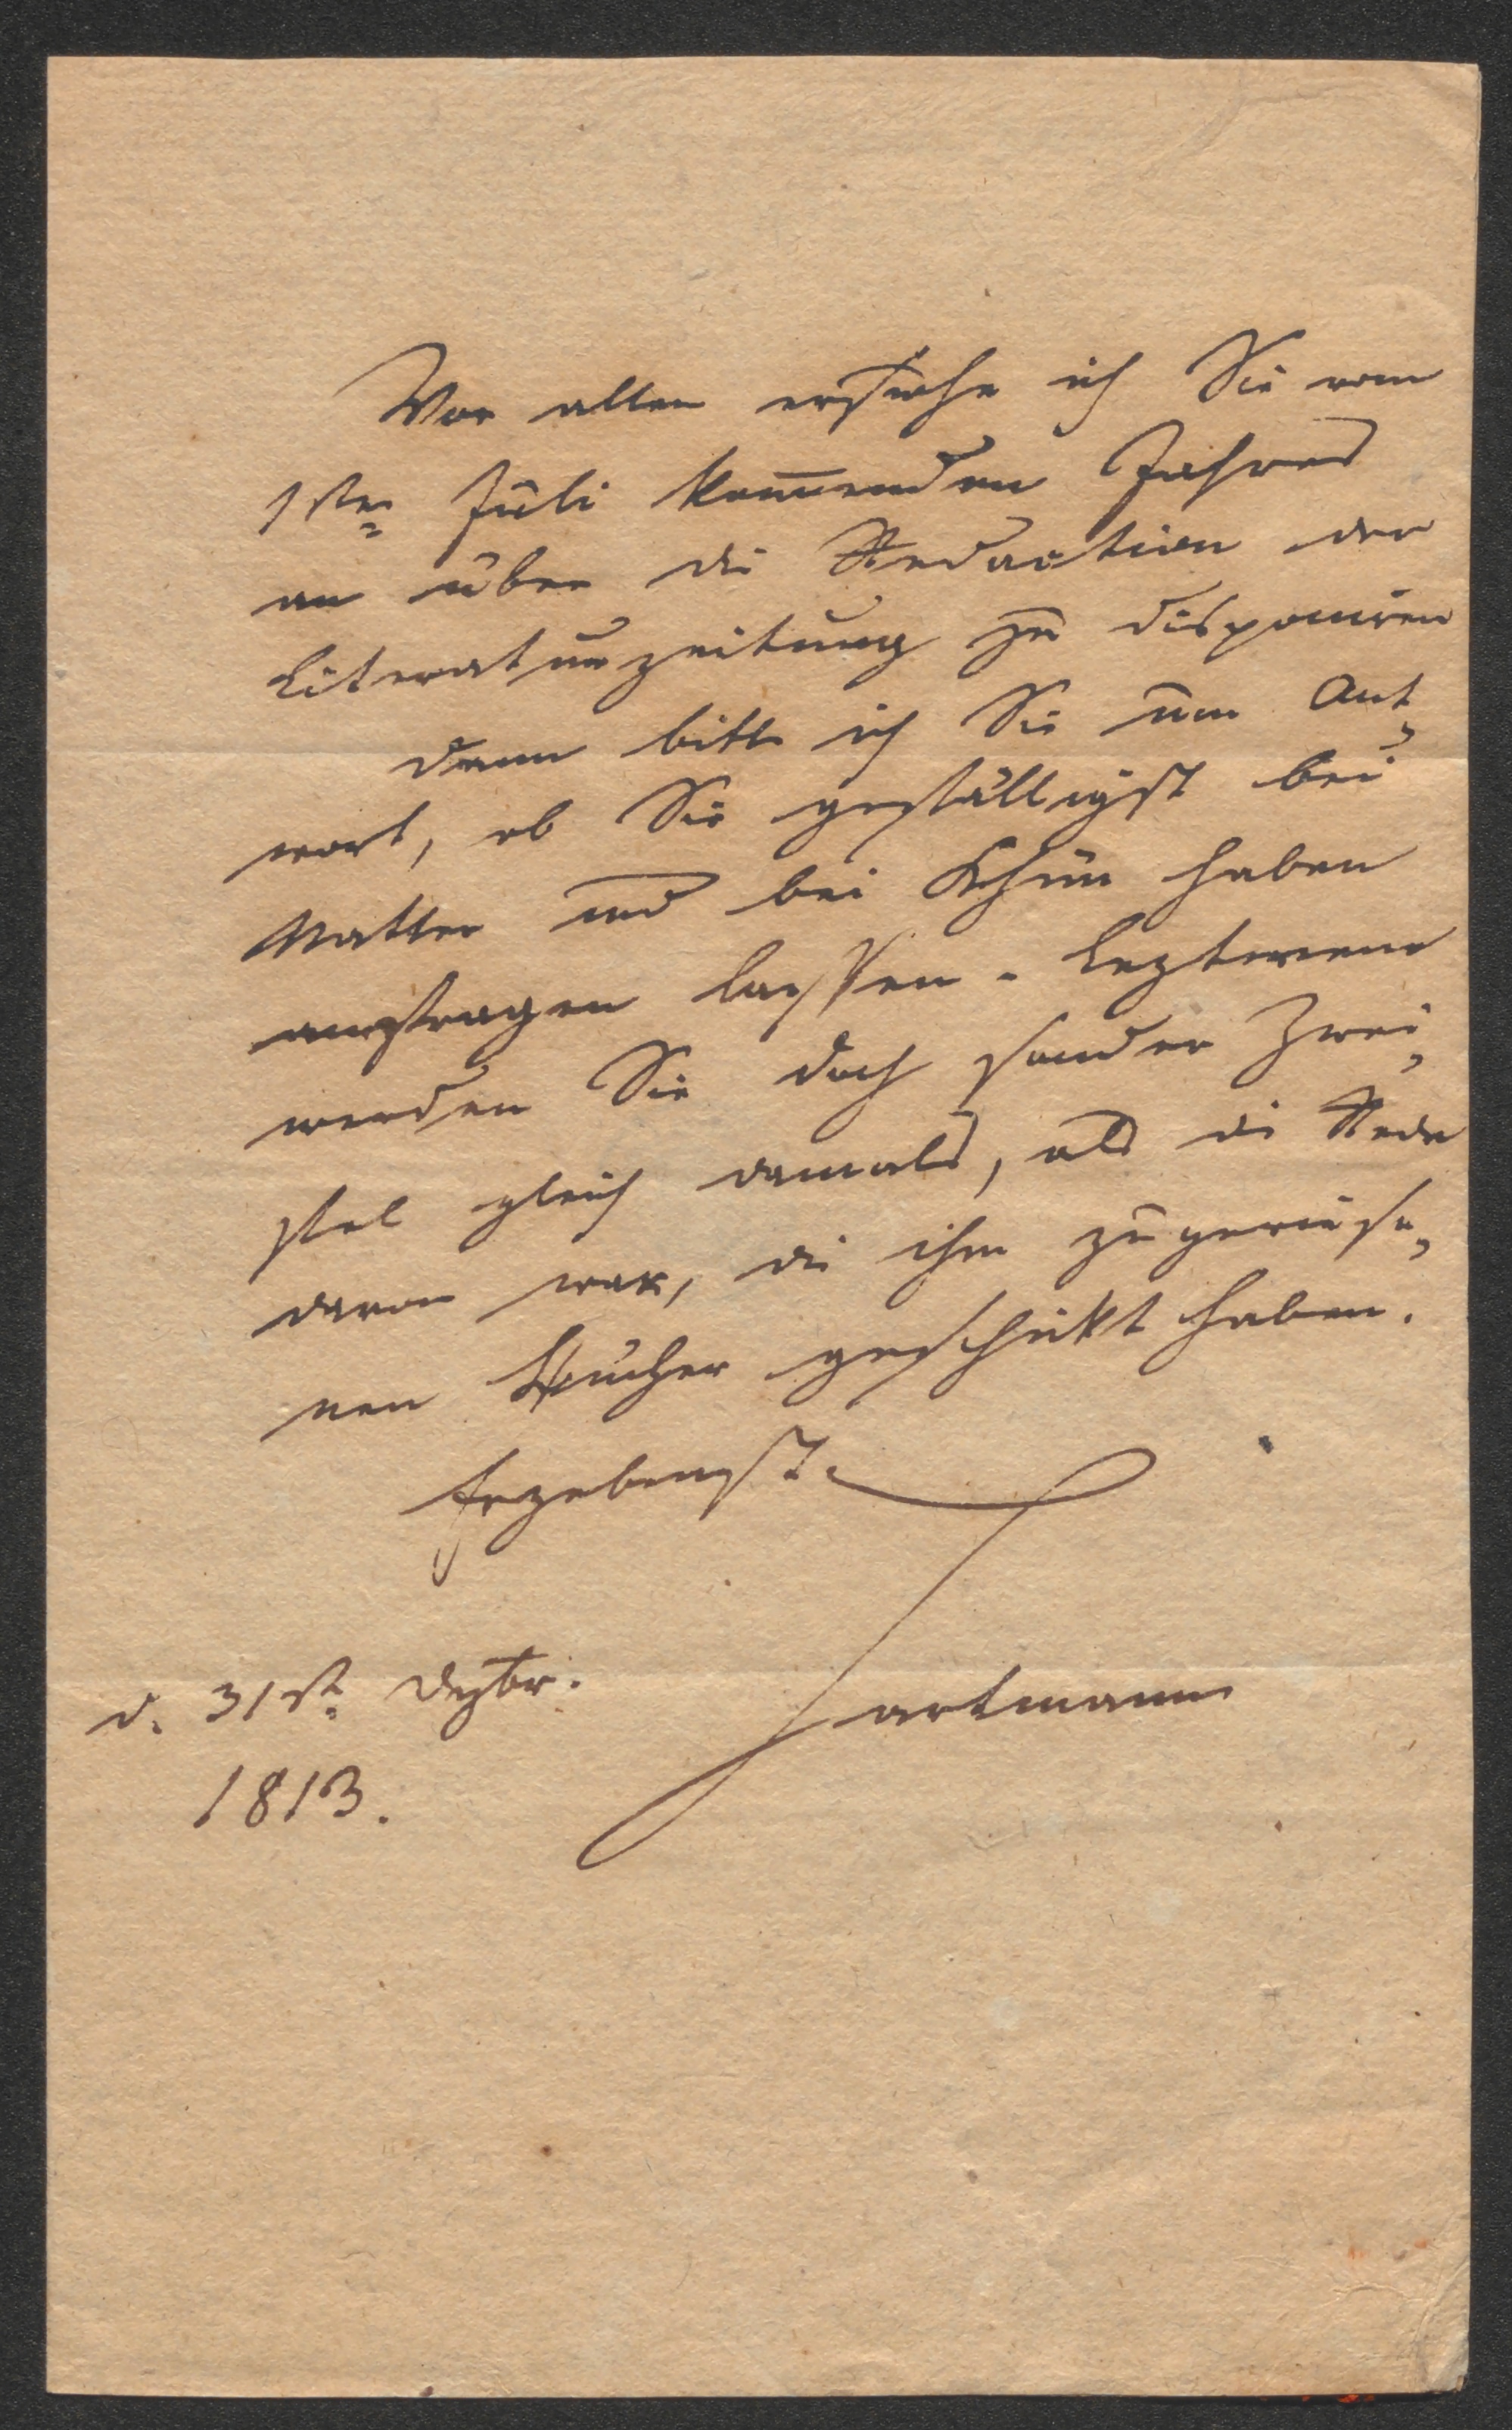 Vor allen ersuche ich Sie vom
1sten Juli kommenden Jahres
an über die Redaction der
Literaturzeitung zu disponiren
Dann bitte ich Sie um Ant-
wort, ob Sie gefälligst bei
Matter und bei haben
anfragen lassen. Lezterem
werden Sie doch sonder Zwei-
fel gleich damals, als die Rede
davon war, die ihm zugewiese-
nen Bücher geschikt haben.
Ergebenst
Hartmann
d. 31st. Dezbr.
1813.